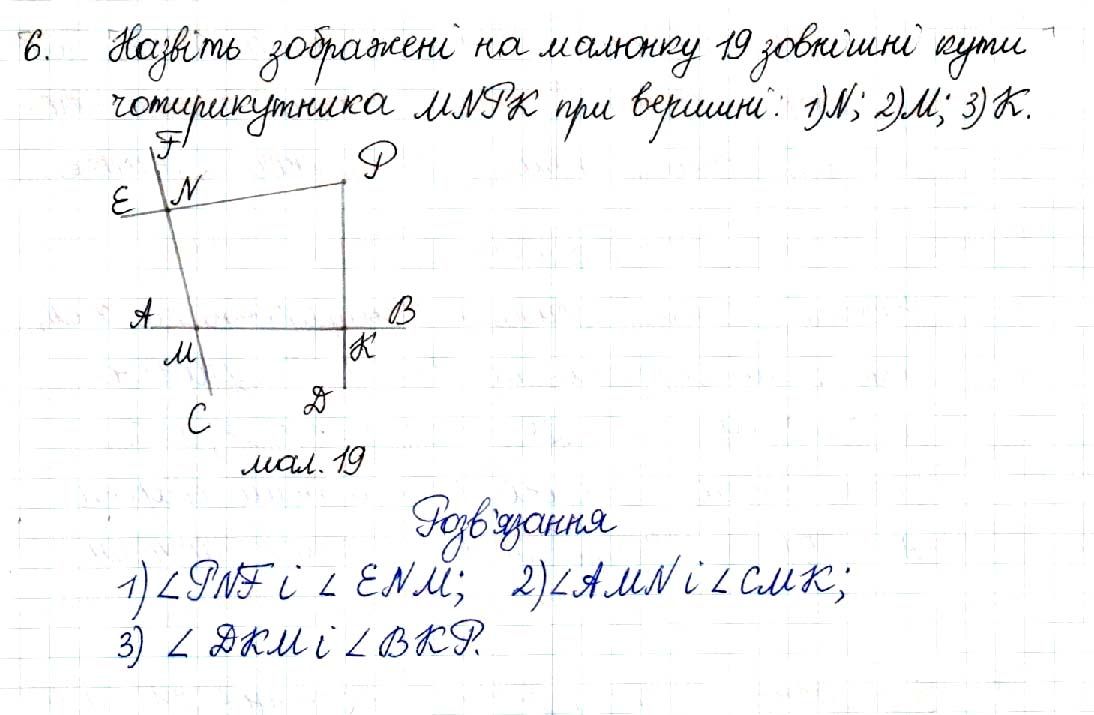 6. Назвіть зображені на малюнку 19 зовнішні кути
чотирикутника MNPK при вершині: 1) N; 2) M; 3) K.
F
P
E N
A B
M K
C D
мал. 19
Розв'язання
1) ∠PNF і ∠ENM; 2) ∠AMN і ∠CMK;
3) ∠DKM і ∠BKP.